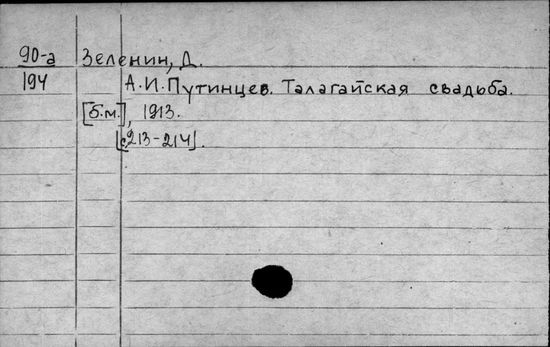 90-а Зеленин, Д.
194 А.И.Путинцев. Талагайская свадьба.
[б.м.], 1913.
[с.213-214].